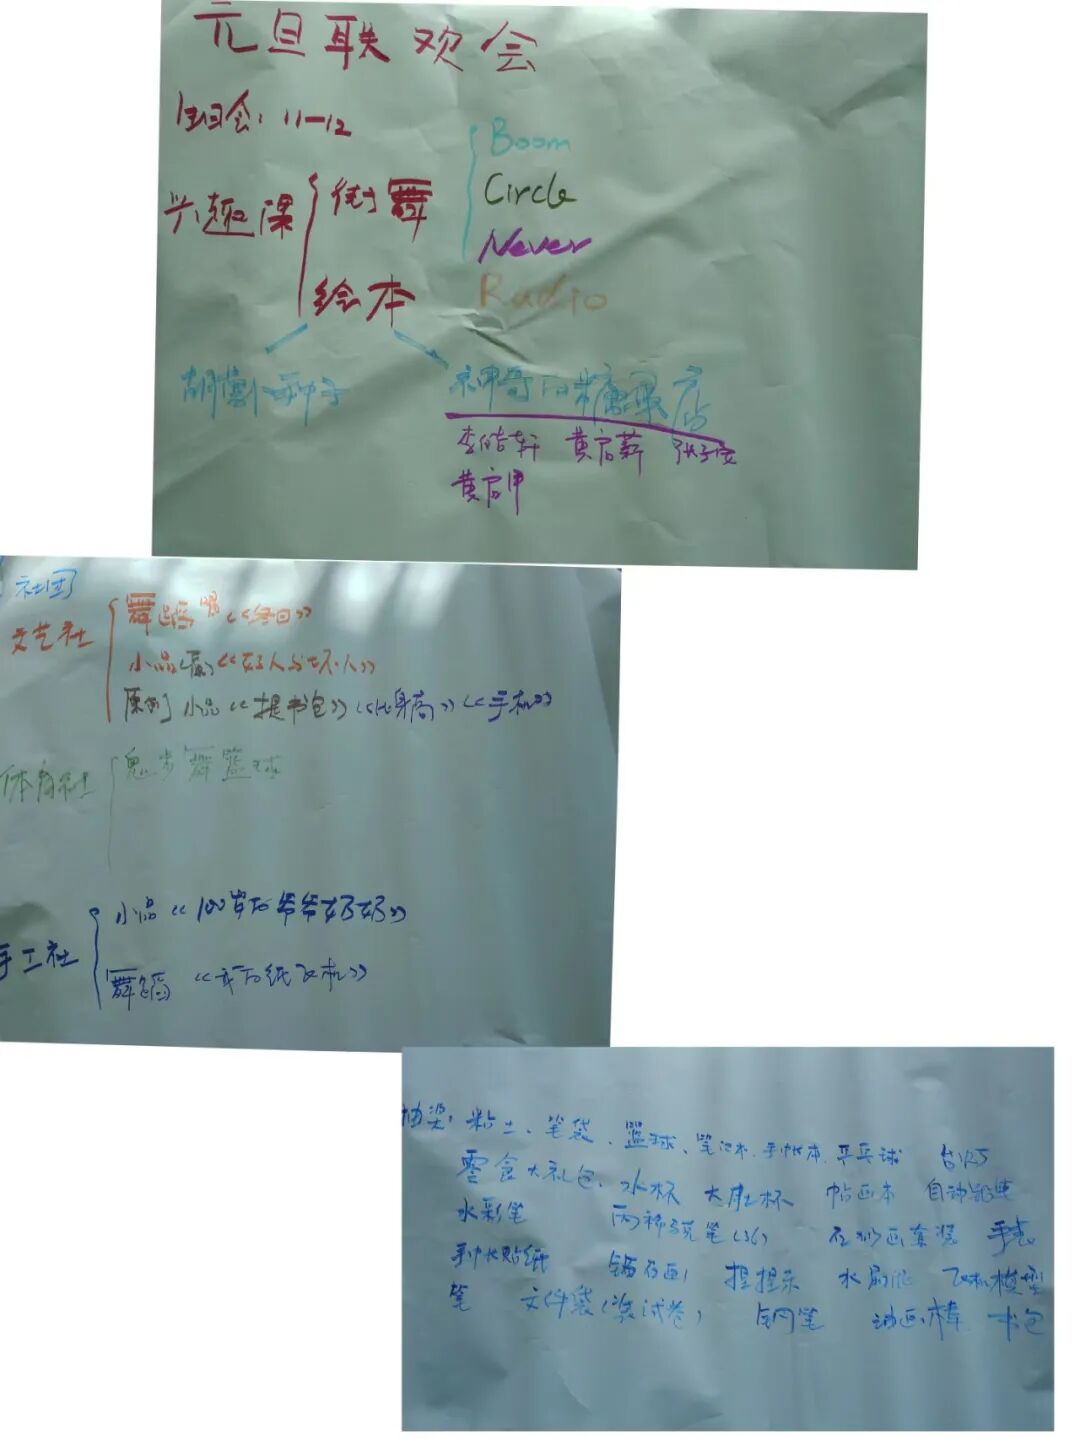 元旦联欢会
生日会：11—12
兴趣课
街舞
Boom
Circle
Never
Radio
绘本
胡萝卜种子
神奇的糖果店
李皓轩 黄启薪
黄启甲
社团
文艺社
舞蹈《冬日》
小品《好人与坏人》
原创 小品《提书包》《比身高》《手机》
体育社
鬼步舞 篮球
手工社
小品《100岁的爷爷奶奶》
舞蹈《我的纸飞机》
抽奖：粘土、笔袋、篮球、笔记本、手帐本、乒乓球 台灯
零食大礼包、水杯 大肚杯 帖画本 自动铅笔
水彩笔 丙稀马克笔(36) 石膏画套装 手表
手帐贴纸 钻石画 捏捏乐 飞机模型
笔 文件袋(装试卷) 钢笔 书包